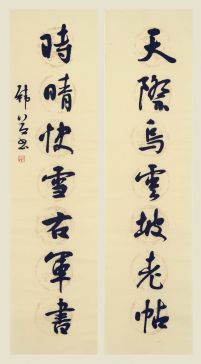 天際烏雲坡老帖
時晴快雪右軍書